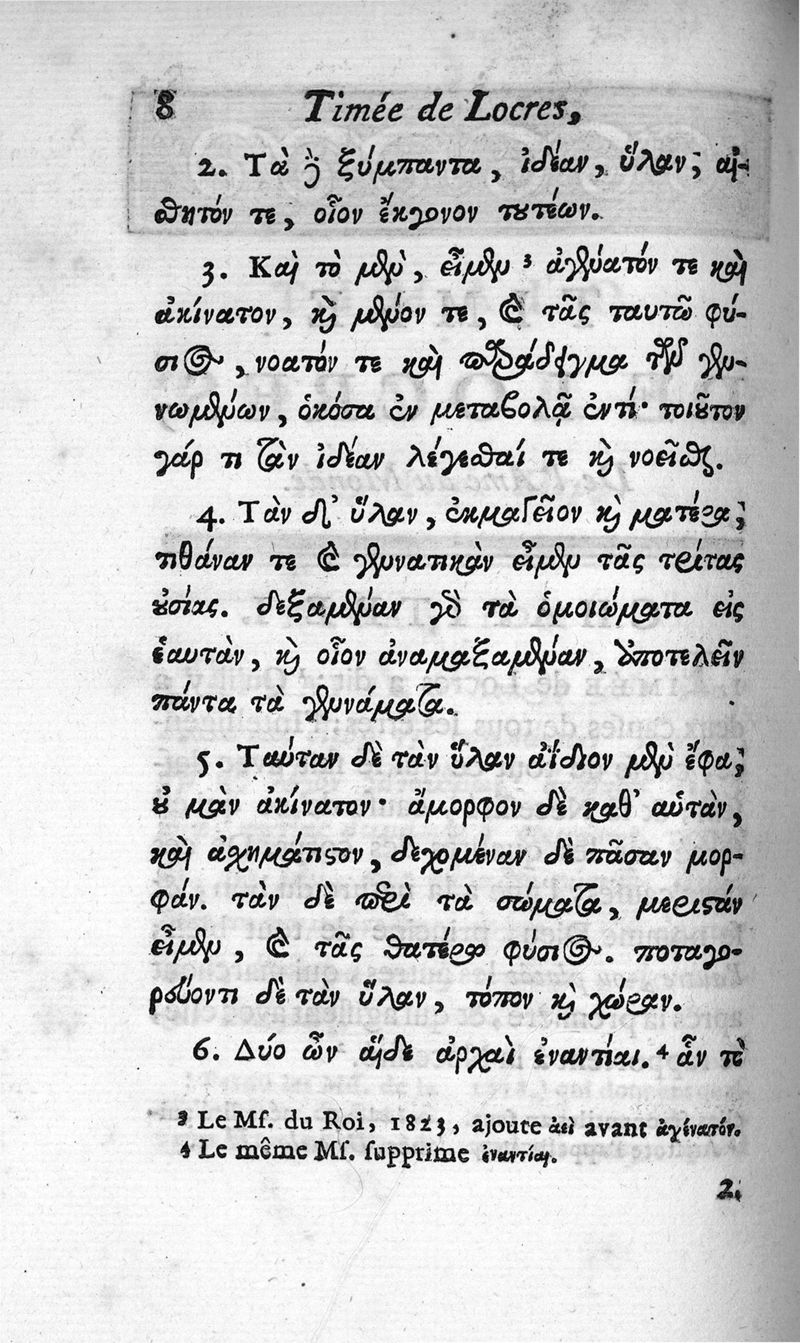 8 Timée de Locres,
2. Τὰ δὲ ξύμπαντα, ἰδέαν, ὕλαν, αἰσ-
θητόν τε, οἷον ἔκγονον τουτέων.
3. Καὶ τὸ μὲν, εἶμεν ³ ἀγένατόν τε καὶ
ἀκίνατον, καὶ μένον τε, καὶ τᾶς ταυτῶ φύ-
σιος, νοατόν τε καὶ παράδειγμα τῶν γεν-
νωμένων, ὁκόσα ἐν μεταβολᾷ ἐντί· τοιοῦτον
γάρ τι τὰν ἰδέαν λέγεσθαί τε καὶ νοεῖσθαι.
4. Τὰν δ' ὕλαν, ἐκμαγεῖον καὶ ματέρα,
τιθάναν τε καὶ γεννατικὰν εἶμεν τᾶς τρίτας
οὐσίας. δεξαμέναν γὰρ τὰ ὁμοιώματα εἰς
ἑαυτὰν, καὶ οἷον ἀναμαξαμέναν, ἀποτελεῖν
πάντα τὰ γεννάματα.
5. Ταύταν δὲ τὰν ὕλαν ἀΐδιον μὲν ἔφα,
οὐ μὰν ἀκίνατον· ἄμορφον δὲ καθ' αὑτὰν,
καὶ ἀσχημάτιστον, δεχομέναν δὲ πᾶσαν μορ-
φάν. τὰν δὲ περὶ τὰ σώματα, μεριστάν
εἶμεν, καὶ τᾶς θατέρω φύσιος. ποταγο-
ρεύοντι δὲ τὰν ὕλαν, τόπον καὶ χώραν.
6. Δύο ὦν αἵδε ἀρχαὶ ἐναντίαι. ⁴ ἇν τὸ
³ Le Mſ. du Roi, 1823, ajoute ἀεὶ avant ἀγένατόν.
⁴ Le même Mſ. ſupprime ἐναντίαι.
2.